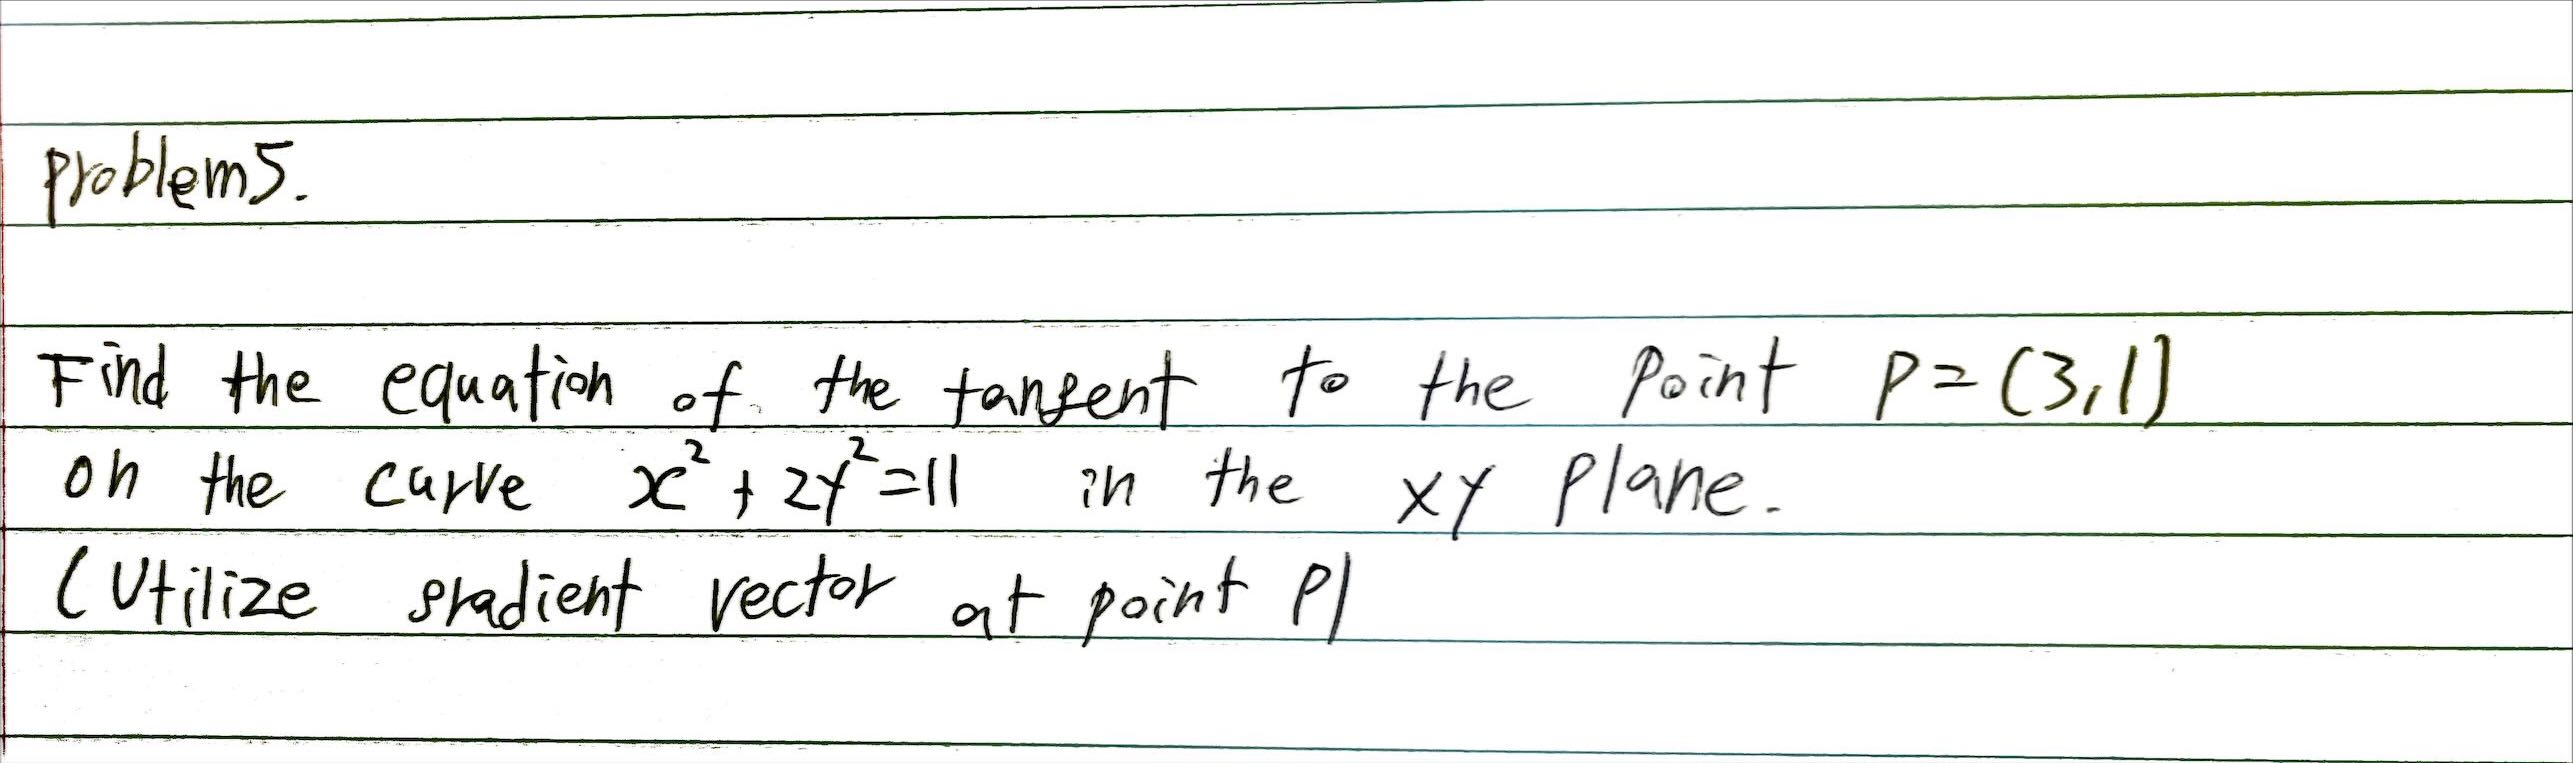 problem5.
Find the equation of the tangent to the point P=(3,1)
on the curve x²+2y²=11 in the xy plane.
(Utilize gradient vector at point P)